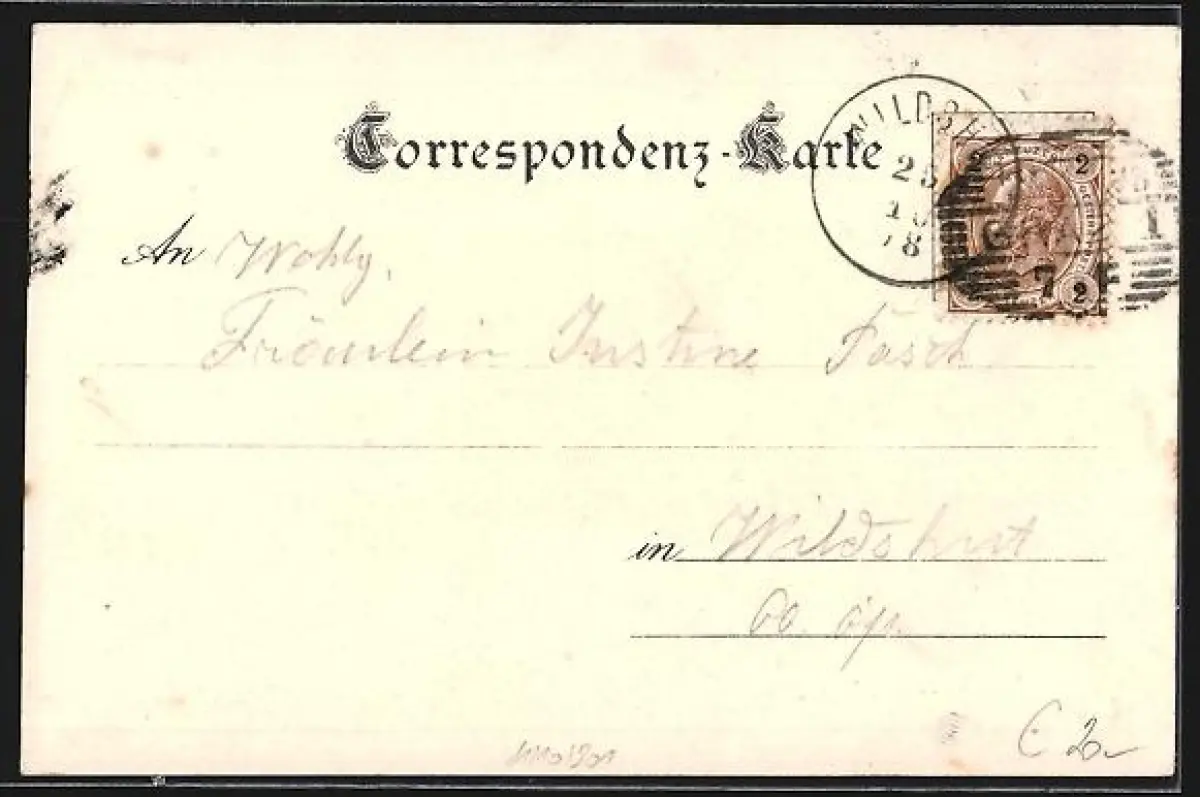 Correspondenz-Karte
WILDSH
25
10
78
2 2
7 2
1
An Wohlg.
Fräulein Justine Fasch
in Wildshut
Ob. Öst.
C 2.-